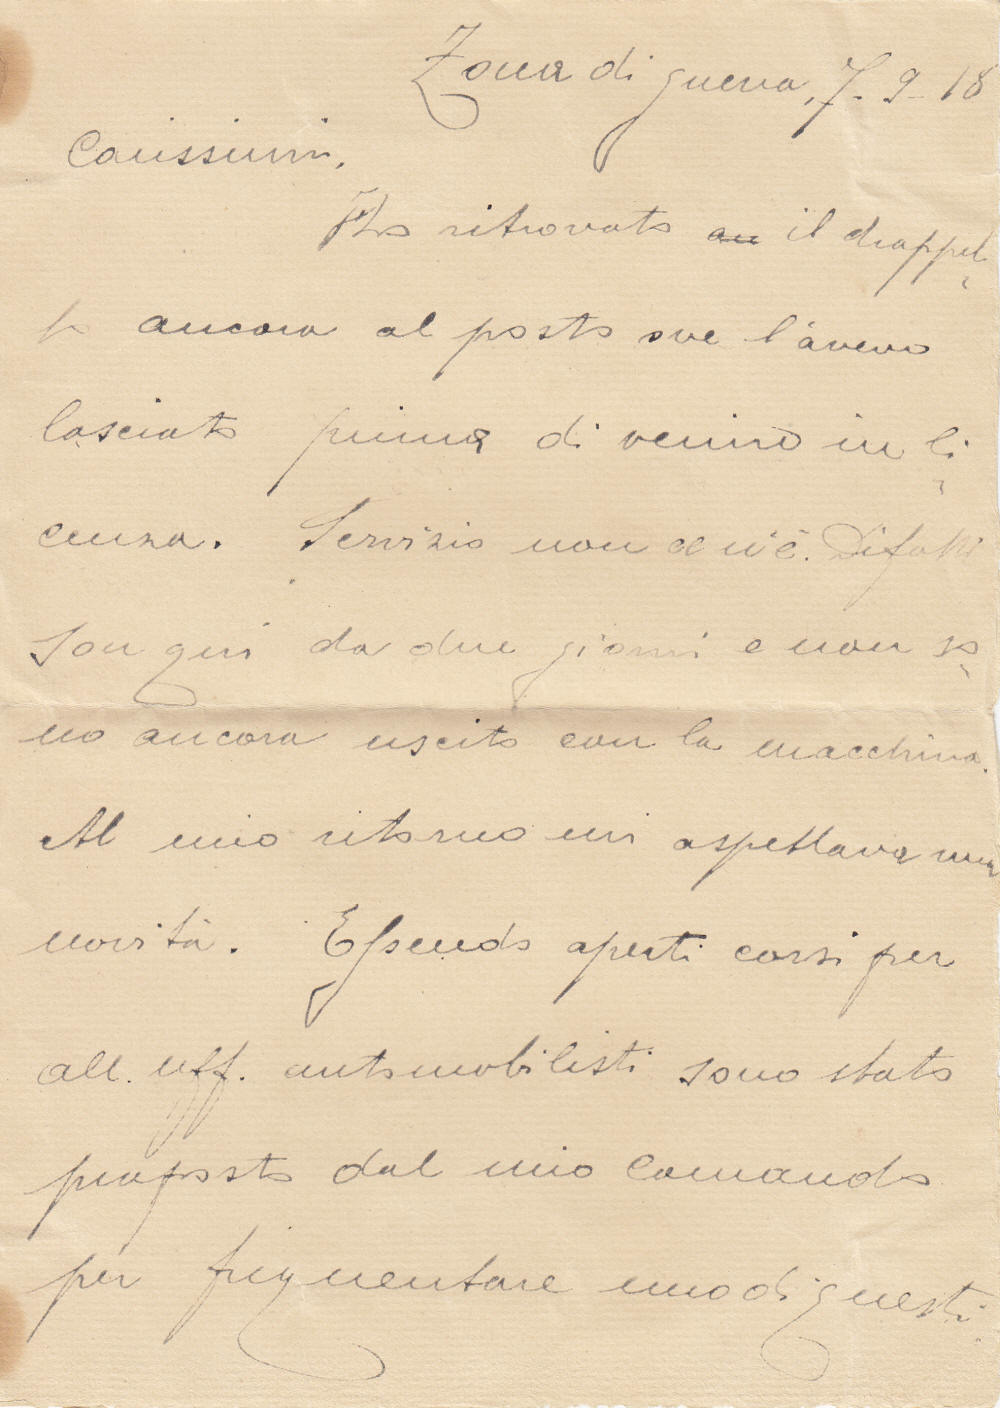 Zona di guerra, 7-9-18
Carissimi,
Ho ritrovato au il drappel-
lo ancora al posto ove l'avevo
lasciato prima di venire in li-
cenza. Servizio non ce n'è. Difatti
son qui da due giorni e non so-
no ancora uscito con la macchina.
Al mio ritorno mi aspettava una
novità. Essendo aperti corsi per
all. uff. automobilisti sono stato
proposto dal mio Comando
per frequentare uno di questi.